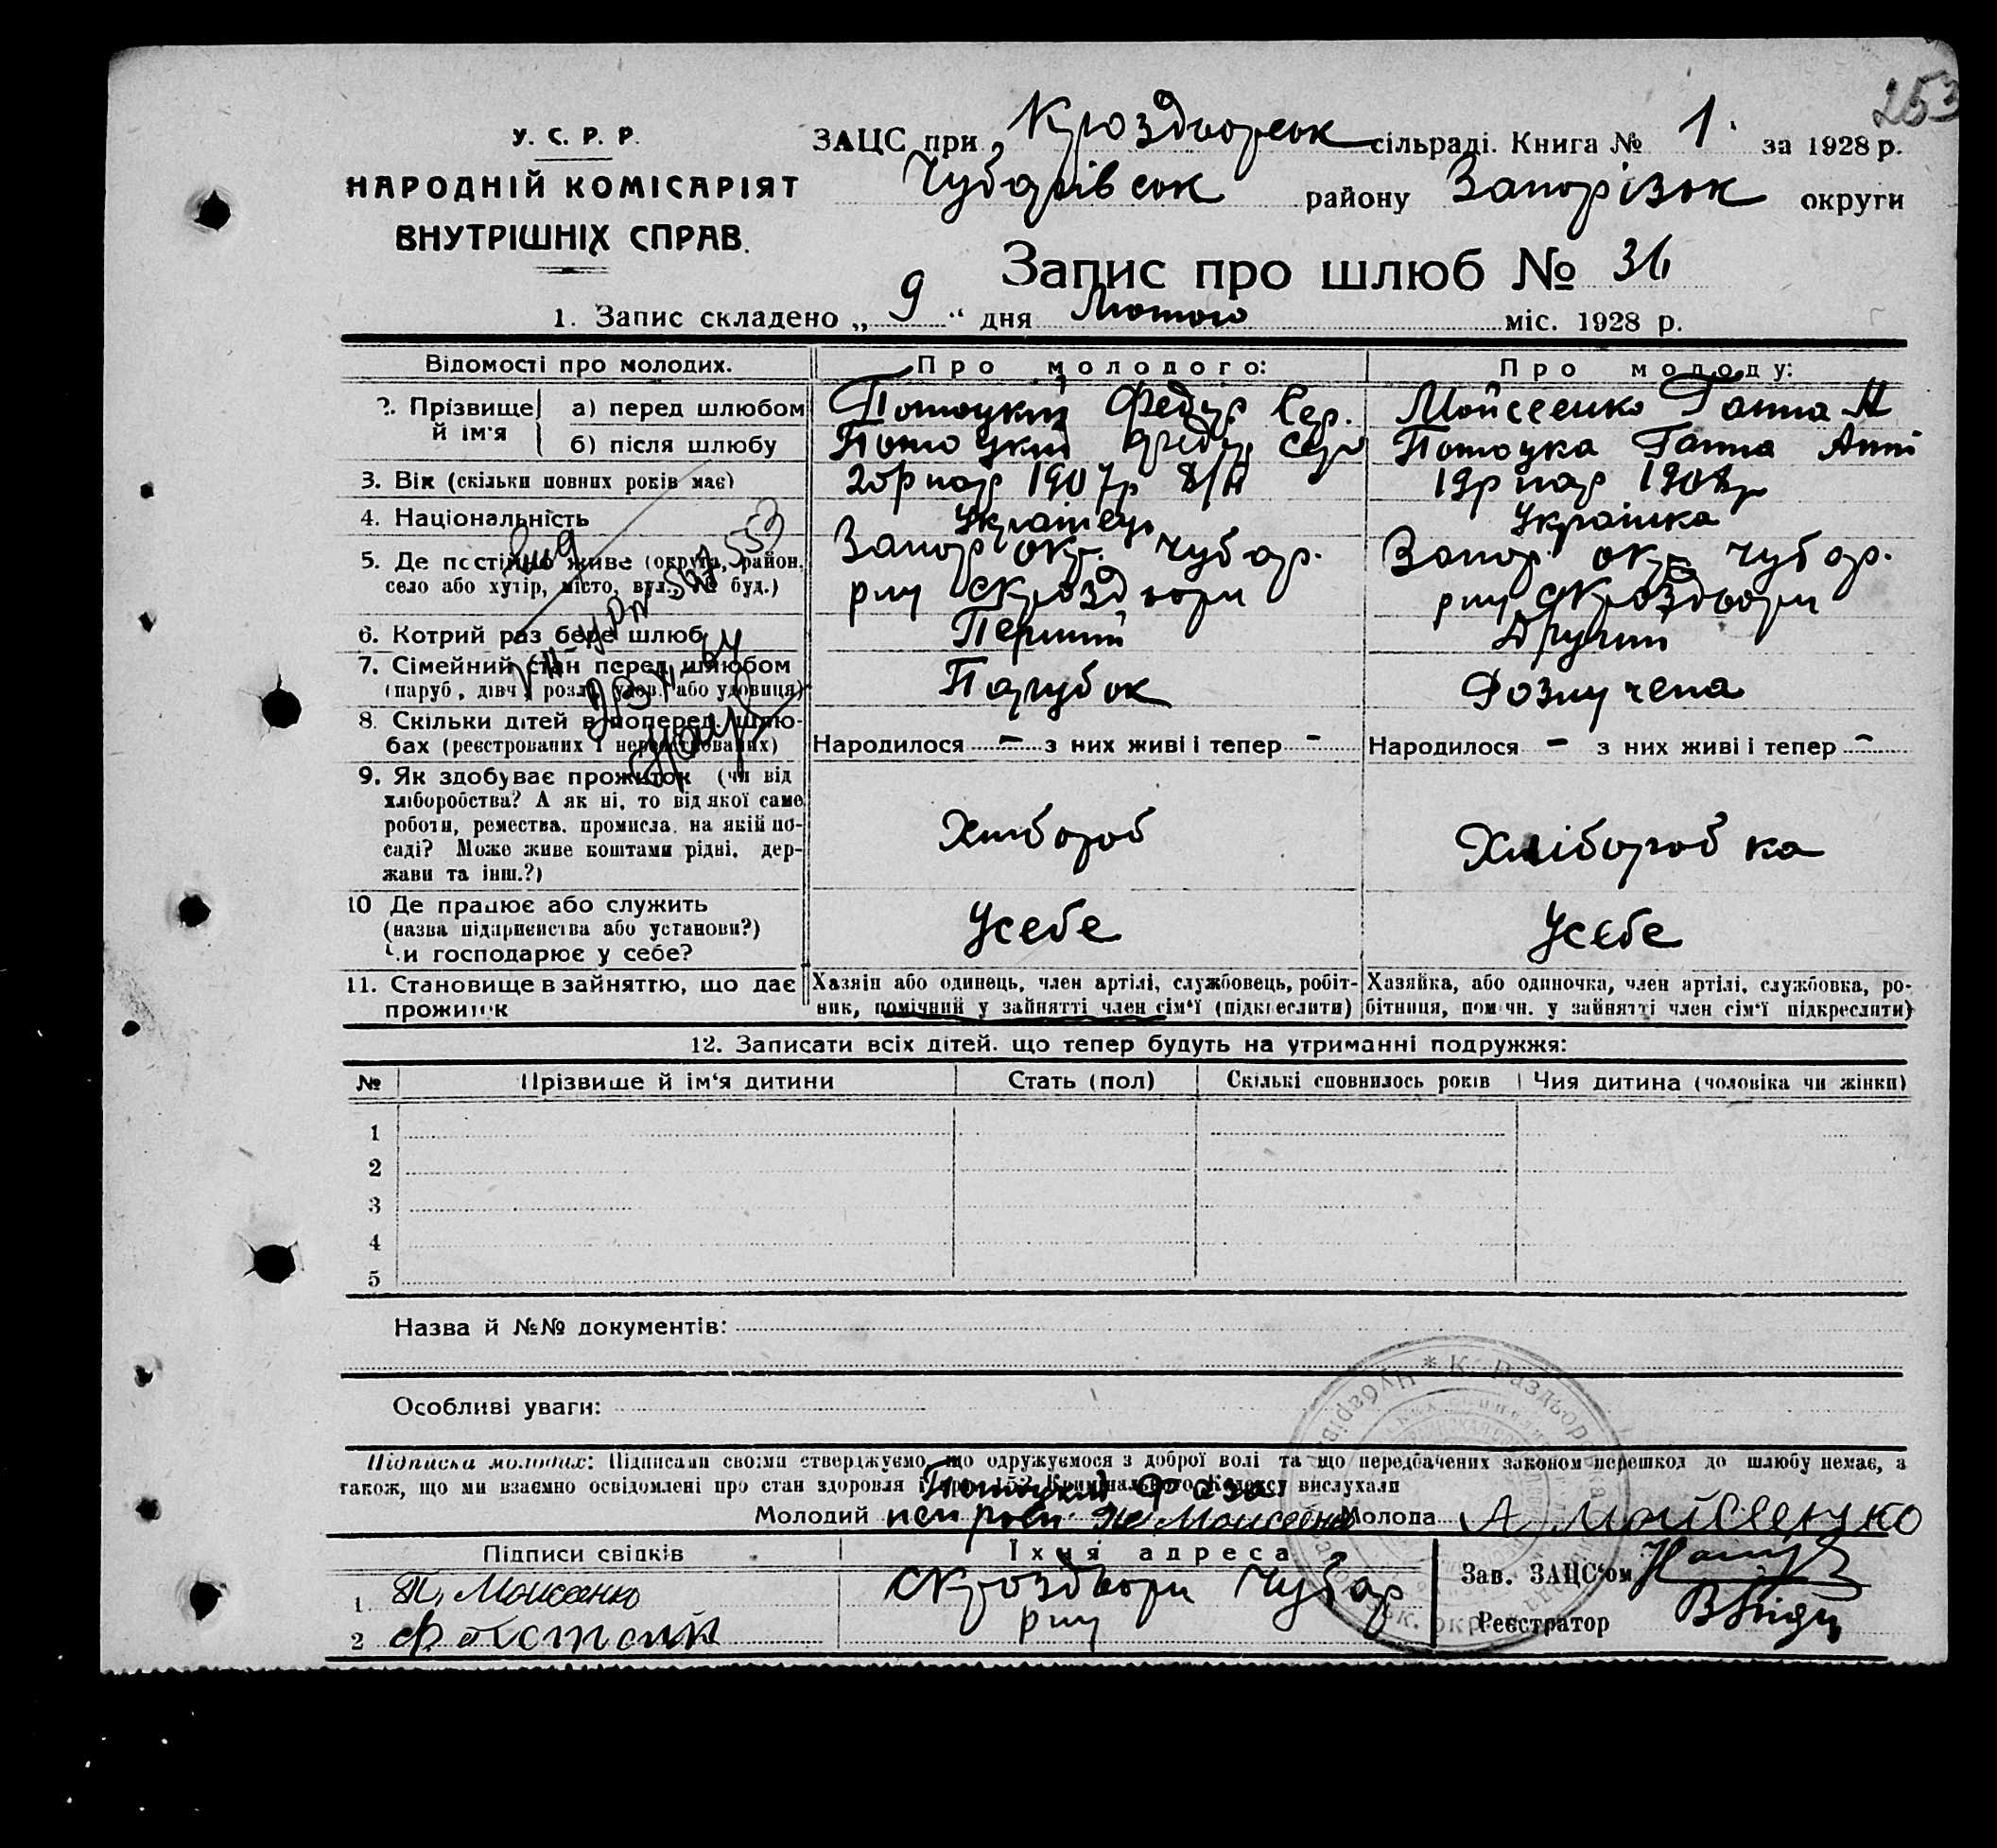 253
У. С. Р. Р.
НАРОДНІЙ КОМІСАРІЯТ
ВНУТРІШНІХ СПРАВ.
ЗАЦС при Кроздорськ сільраді. Книга № 1. за 1928 р.
Чубарівськ району Запорізьк округи
Запис про шлюб № 31
1. Запис складено „ 9 “ дня Лютого міс. 1928 р.
Відомості про молодих. Про молодого: Про молоду:
2. Прізвище й ім'я
а) перед шлюбом Потоцкий Федір Сер. Мойсеенко Ганна А
б) після шлюбу Потоцкий Федір Сер Потоцка Ганна Ант
3. Вік (скільки повних років має) 20р нар 1907р 19р нар 1908р
4. Національність Українець Українка
5. Де постійно живе (округа, район, Запор окр. Чубар. Запор окр Чубар.
село або хутір, місто, вул., № буд.) рну с Кроздори рну с Кроздори
6. Котрий раз бере шлюб Перший Другий
7. Сімейний стан перед шлюбом
(паруб., дівч., розл., удов. або удовиця) Парубок Розлучена
8. Скільки дітей в поперед. шлю-
бах (реєстрованих і нереєстрованих) Народилося – з них живі і тепер – Народилося – з них живі і тепер –
9. Як здобуває прожиток (чи від
хліборобства? А як ні, то від якої саме
роботи, ремества, промисла, на якій по-
саді? Може живе коштами рідні, дер-
жави та інш.?) Хлібороб Хліборобка
10 Де працює або служить
(назва підприємства або установи?)
Чи господарює у себе? Усебе Усебе
11. Становище в зайняттю, що дає
прожиток
Хазяїн або одинець, член артілі, службовець, робіт-
ник, помічний у зайнятті член сім'ї (підкреслити)
Хазяйка, або одиночка, член артілі, службовка, ро-
бітниця, помічн. у зайнятті член сім'ї підкреслити)
12. Записати всіх дітей, що тепер будуть на утриманні подружжя:
№ Прізвише й ім'я дитини Стать (пол) Скількі сповнилось років Чия дитина (чоловіка чи жінки)
1
2
3
4
5
Назва й №№ документів:
Особливі уваги:
Підписка молодих: Підписами своїми стверджуємо, що одружуємося з доброї волі та що передбачених законом перешкод до шлюбу немає, а
також, що ми взаємно освідомлені про стан здоровля і Кримінального Кодексу вислухали
Потоцкий
Молодий Моисеенко Молода А Мойсенуко
Підписи свідків Їхня адреса
1 Т. Моисенко с Кроздори Чубар
2 рну
Зав. ЗАЦС'ом
Реєстратор